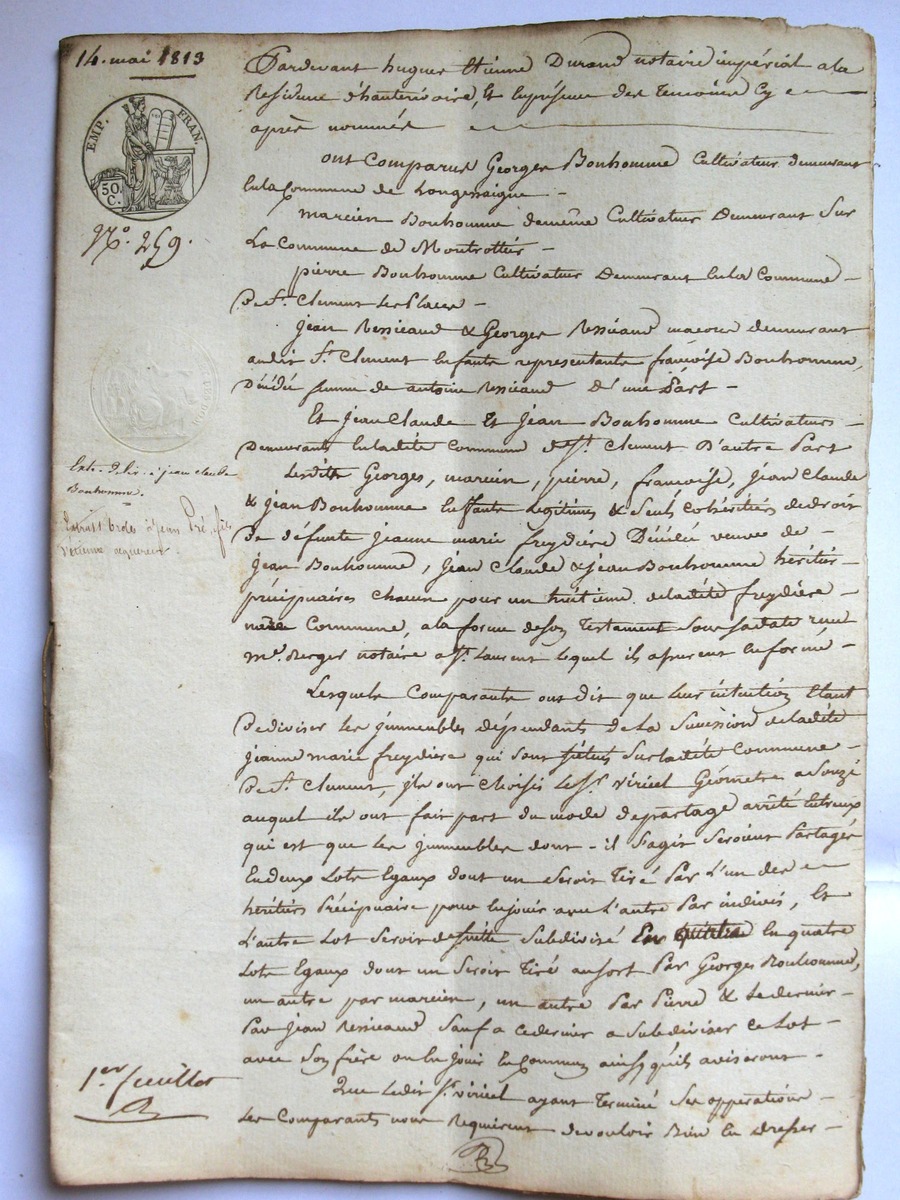 14. mai 1813
EMP. FRAN.
50 C.
N.o 259.
Extr. delivr. à jean claude
Bonhomme.
Extrait à jean fils
d'étienne acquereur.
Pardevant hugues Etienne Durand notaire impérial a la
Residence d'hauterivoire, Et en présence des temoins Cy
après nommés
ont Comparus Georges Bonhomme Cultivateur demeurant
En la Commune de Longessaigne
marcien Bonhomme de même Cultivateur Demeurant Sur
La Commune de Montrottier
pierre Bonhomme Cultivateur Demeurant En la Commune
De St. Clement Les Places
jean Ressicaud & Georges Ressicaud macons demeurant
audit St. Clement Enfants representants françoise Bonhomme,
Décédée femme de antoine Ressicaud d'une Part
Et jean Claude Et jean Bonhomme Cultivateurs
Demeurants En ladite Commune de St. Clement D'autre Part
Lesdits Georges, marcien, pierre, francoise, jean Claude
& jean Bonhomme Enfants legitimes & Seuls Cohéritiers de droit
De défunte jeanne marie freydière Décédée veuve de
jean Bonhomme, jean Claude & jean Bonhomme héritiers
précipuaires chacun pour un huitieme de ladite freydière
mère Commune, a la forme de Son Testament Sous Sa date recu
Me. Berger notaire a St. Laurent lequel ils assurent En forme
Lesquels Comparants ont dit que leur intention Etant
De diviser Les jmmeubles dépendants de La Succession de ladite
jeanne marie freydiere qui Sont Sur ladite Commune
De St. Clement, jls ont choisis Le Sr. viricel Géometre a Souzé
auquel ils ont fait part du mode de partage arrêté Entreux
qui est que les jmmeubles dont il S'agit Seroient Partagés
En deux Lots Egaux dont un Seroit Tiré Par L'un des
héritiers Précipuaires pour En jouir avec L'autre Par indivis, Et
L'autre Lot Seroit de Suite Subdivisé En quatre
Lots Egaux dont un Seroit Tiré au Sort Par Georges Bonhomme,
un autre par marcien, un autre Par Pierre & Le dernier
Par jean Ressicaud Sauf a ce dernier a Subdiviser ce Lot
avec Son frère ou En jouir En Commun ainsy qu'ils aviseront
Que Ledit Sr. viricel ayant Terminé Ses opperations
Les Comparants nous Requierent de vouloir Bien En Dresser
1.er feuillet